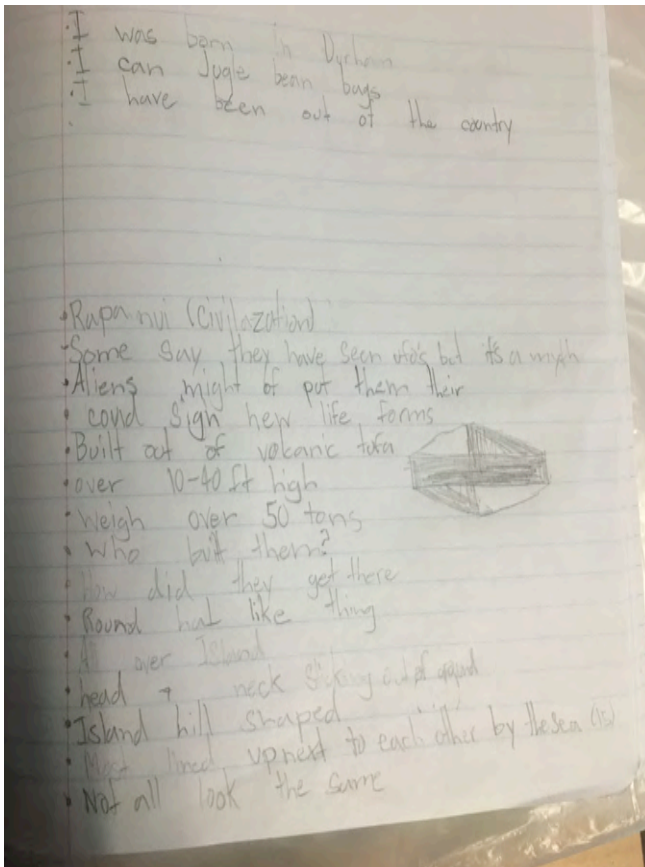 ·I was born in
·I can Jugle bean bags
·I have been out of the country
·
·Rapa nui (civilazation)
·Some say they have seen ufo's but it's a myth
·Aliens might of put them their
· coud sign new life forms
·Built out of volcanic tufa
·over 10-40 ft high
·Weigh over 50 tons
·Who built them?
·How did they get there
·Round hat like thing
·All over Island
·head + neck sticking out of ground
·Island hill shaped
·Most lined up next to each other by the sea (15)
·Not all look the same